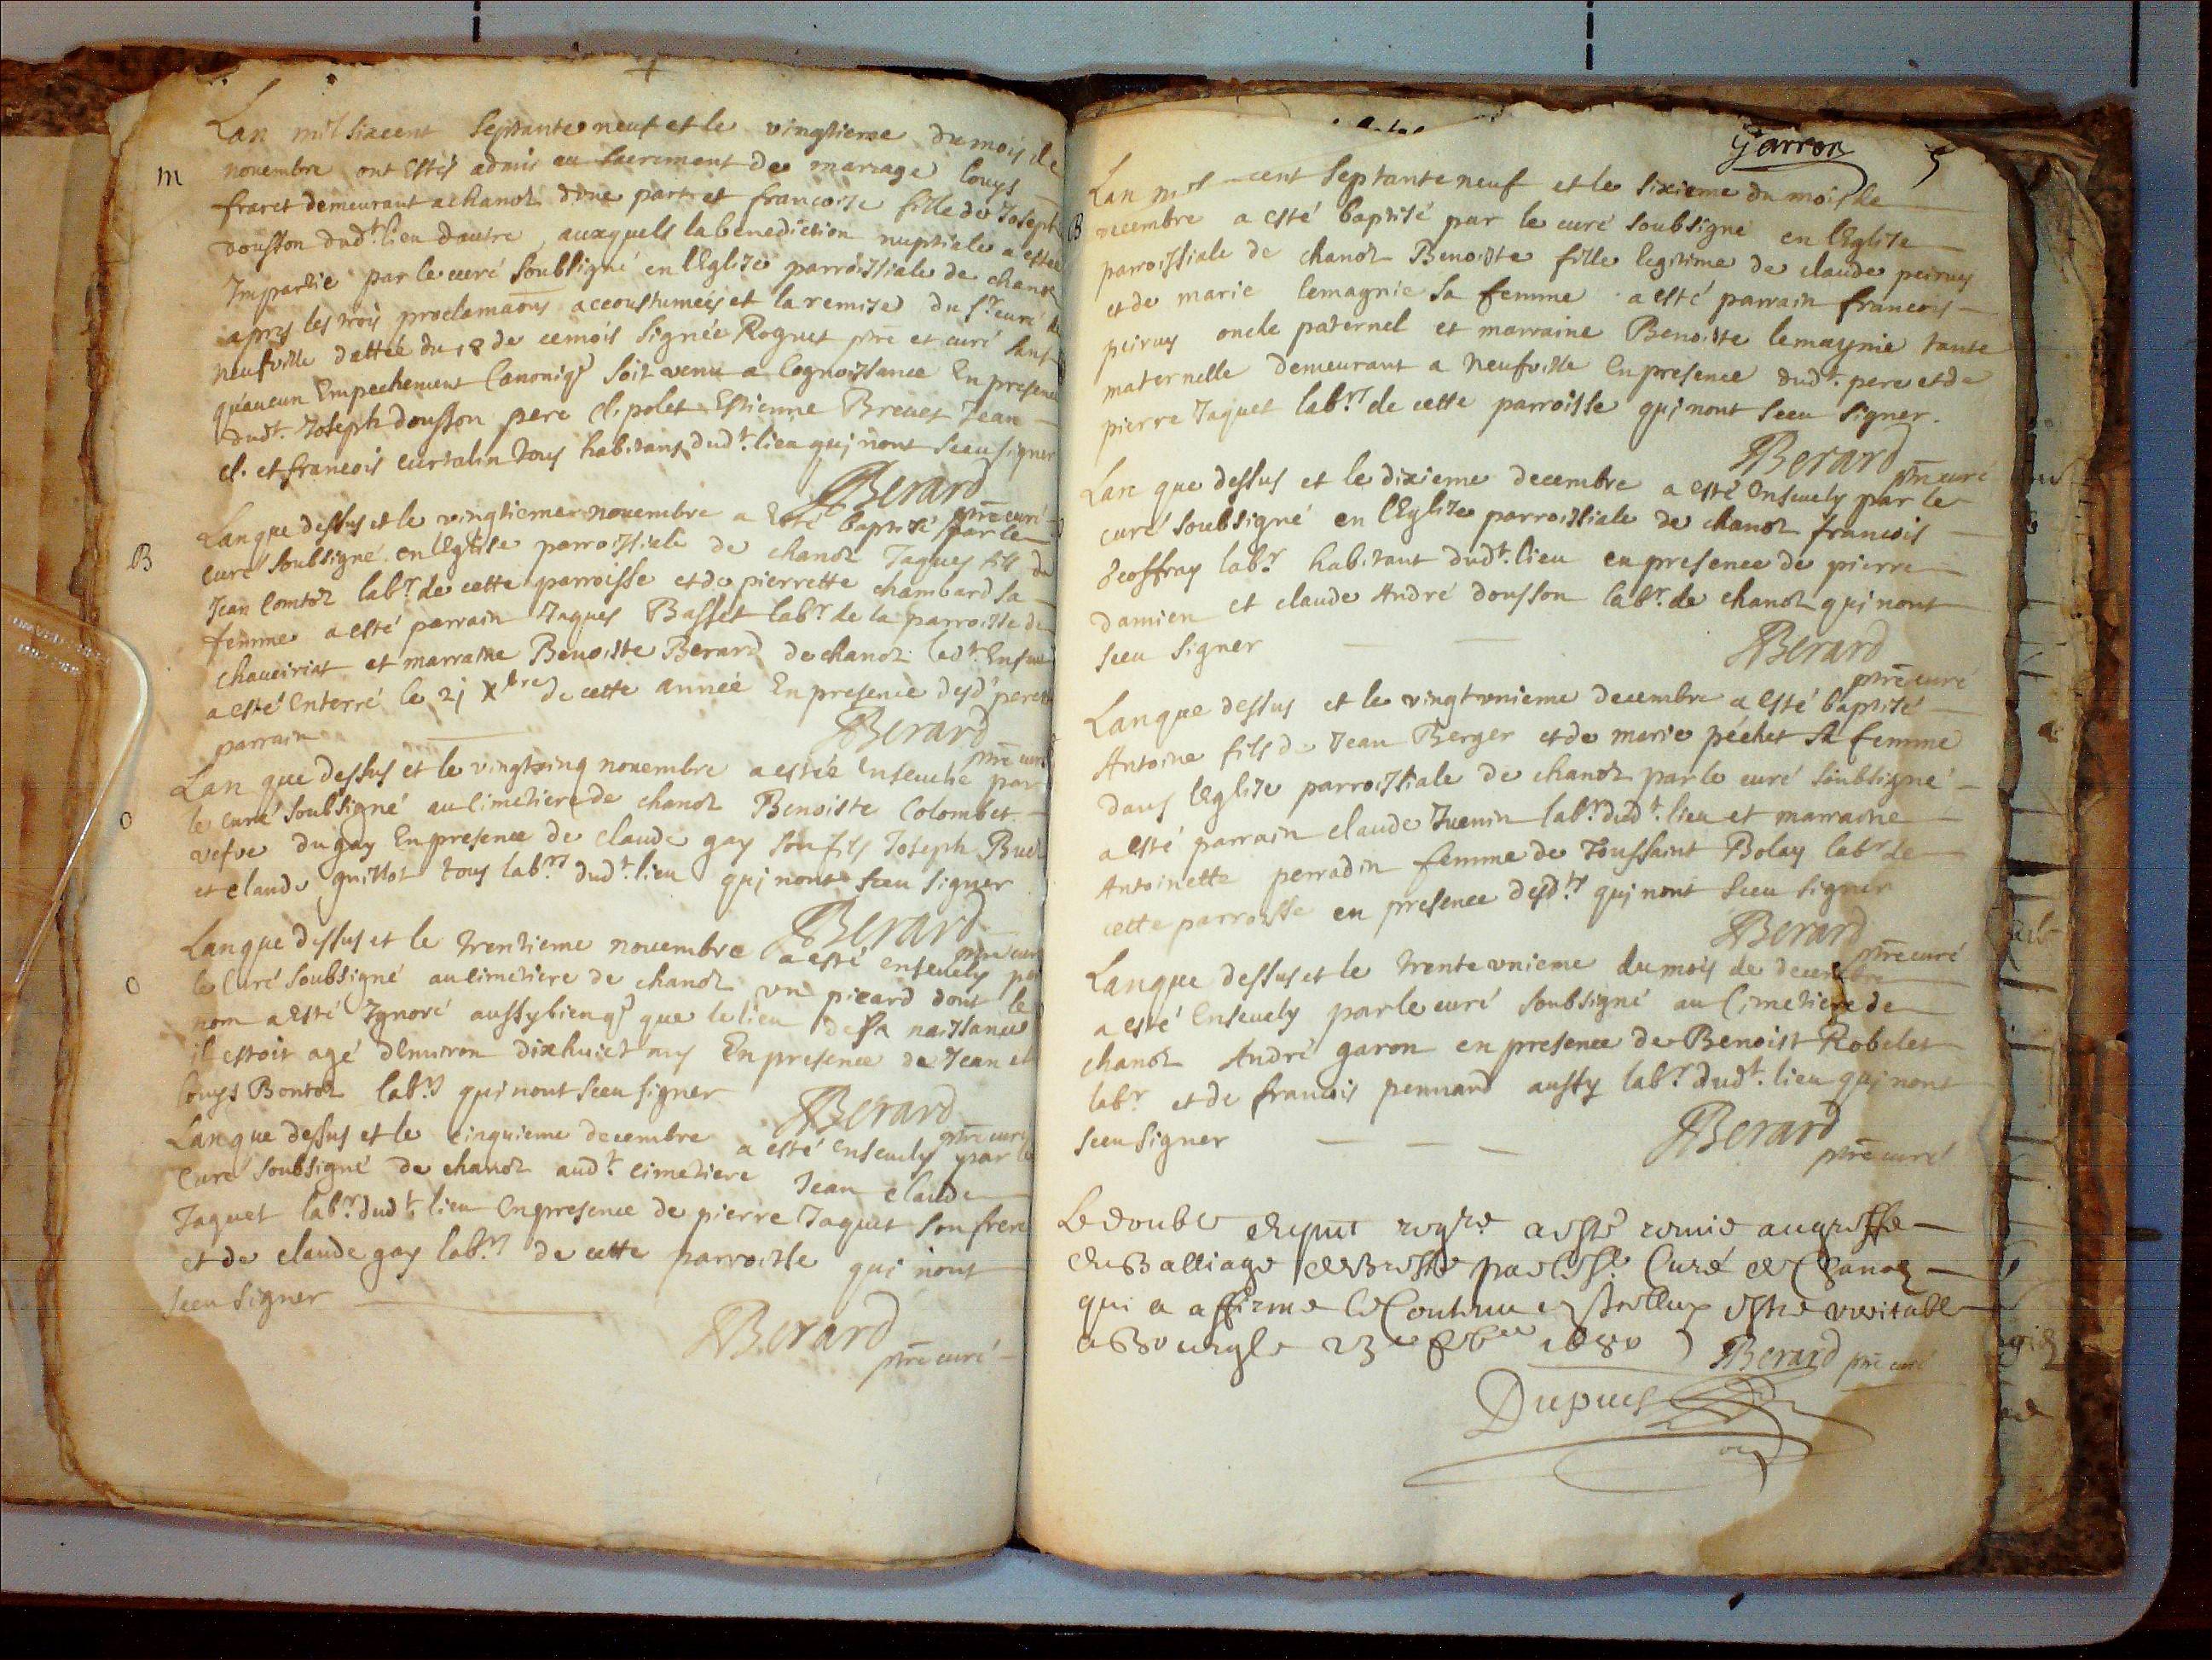 Lan mil sixcent septante neuf et le vingtieme du mois de
m
novembre ont estés admis au sacrement de mariage louys
fraret demeurant a chanoz dune part et francoise fille de Joseph
dousson dudt. lieu dautre, auxquels la benediction nuptiale a estée
Impartie par le curé soubsigné en lEglise parroissiale de chanoz
apres les trois proclamaons accoustumées et la remise du sr. curé de
neufville dattée du 18 de cemois signée Roguet ptre et curé sans
quaucun Empechement Canoniq soit venu a Cognoissance En presence
dudt. Joseph dousson pere cl. polet Estienne Brevet Jean
cl. et francois curtalin tous habitans dudt. lieu qui nont sceu signer
Berard
ptre curé
B
Lan que dessus et le vingtieme novembre a Esté baptisé par le
curé soubsigné en lEglise parroissiale de chanoz Jaques fils de
Jean Comtoz labr. de cette parroisse et de pierrette chambard sa
femme a esté parrain Jaques Basset labr. de la parroisse de
chaveiriat et marraine Benoiste Berard de chanoz ledt. Enfant
a esté Enterré le 21 xbre de cette année En presence desd pere et
parrain
Berard
ptre curé
O
Lan que dessus et le vingtcinq novembre a estée Ensevelie par
le curé soubsigné au Cimetiere de chanoz Benoiste Colombet
vefve du gay En presence de claude gay son fils Joseph
et claude guillot tous labrs. dudt. lieu qui nont sceu signer
Berard
ptre curé
O
Lan que dessus et le trentieme novembre a esté ensevely par
le Curé soubsigné au cimetiere de chanoz un picard dont le
nom a esté Ignoré aussy bien que le lieu de sa naissance
il estoit agé denviron dixhuict ans En presence de Jean et
louys Bontoz labrs qui nont sceu signer
Berard
ptre curé
Lan que dessus et le cinquieme decembre a esté ensevely par le
Curé soubsigné de chanoz audt. cimetiere Jean claude
Jaquet labr. dudt. lieu En presence de pierre Jaquet son frere
et de claude gay labrs. de cette parroisse qui nont
sceu signer
Berard
ptre curé
Garron
5
B
Lan mil cent septante neuf et le sixieme du mois de
decembre a esté baptisé par le curé soubsigné en lEglise
parroissiale de chanoz Benoiste fille legitime de claude peiruy
et de marie lemagnie sa femme a esté parrain francois
peiruy oncle paternel et marraine Benoiste lemaynie tante
maternelle demeurant a Neufville En presence dudt. pere et de
pierre Jaquet labrs. de cette parroisse qui nont sceu signer.
Berard
ptre curé
Lan que dessus et le dixieme decembre a esté Ensevely par le
curé soubsigné en lEglise parroissiale de chanoz francois
Jeoffray labr. habitant dudt. lieu en presence de pierre
damien et claude André dousson labr. de chanoz qui nont
sceu signer
Berard
ptre curé
Lan que dessus et le vingt unieme decembre a esté baptisé
Antoine fils de Jean Berger et de marie péchet sa femme
dans lEglise parroissiale de chanoz par le curé soubsigné
a esté parrain claude Juenin labr. dudt. lieu et marraine
Antoinette perradin femme de Toussaint Bolay labr de
cette parroisse en presence desdts. qui nont sceu signer
Berard
ptre curé
Lan que dessus et le trente unieme du mois de decembre
a esté Ensevely par le curé soubsigné au Cimetiere de
chanoz André garon en presence de Benoist Robelet
labr. et de francois pennard aussy labr. dudt. lieu qui nont
sceu signer
Berard
ptre curé
Le double du pnt regre a esté remis au greffe
du Balliage de Bresse par le Sr. Curé de Chanoz
qui a affirmé le Contenu en Icelluy estre veritable
a Bourg le 23e 1680
Berard ptre curé
Dupuis